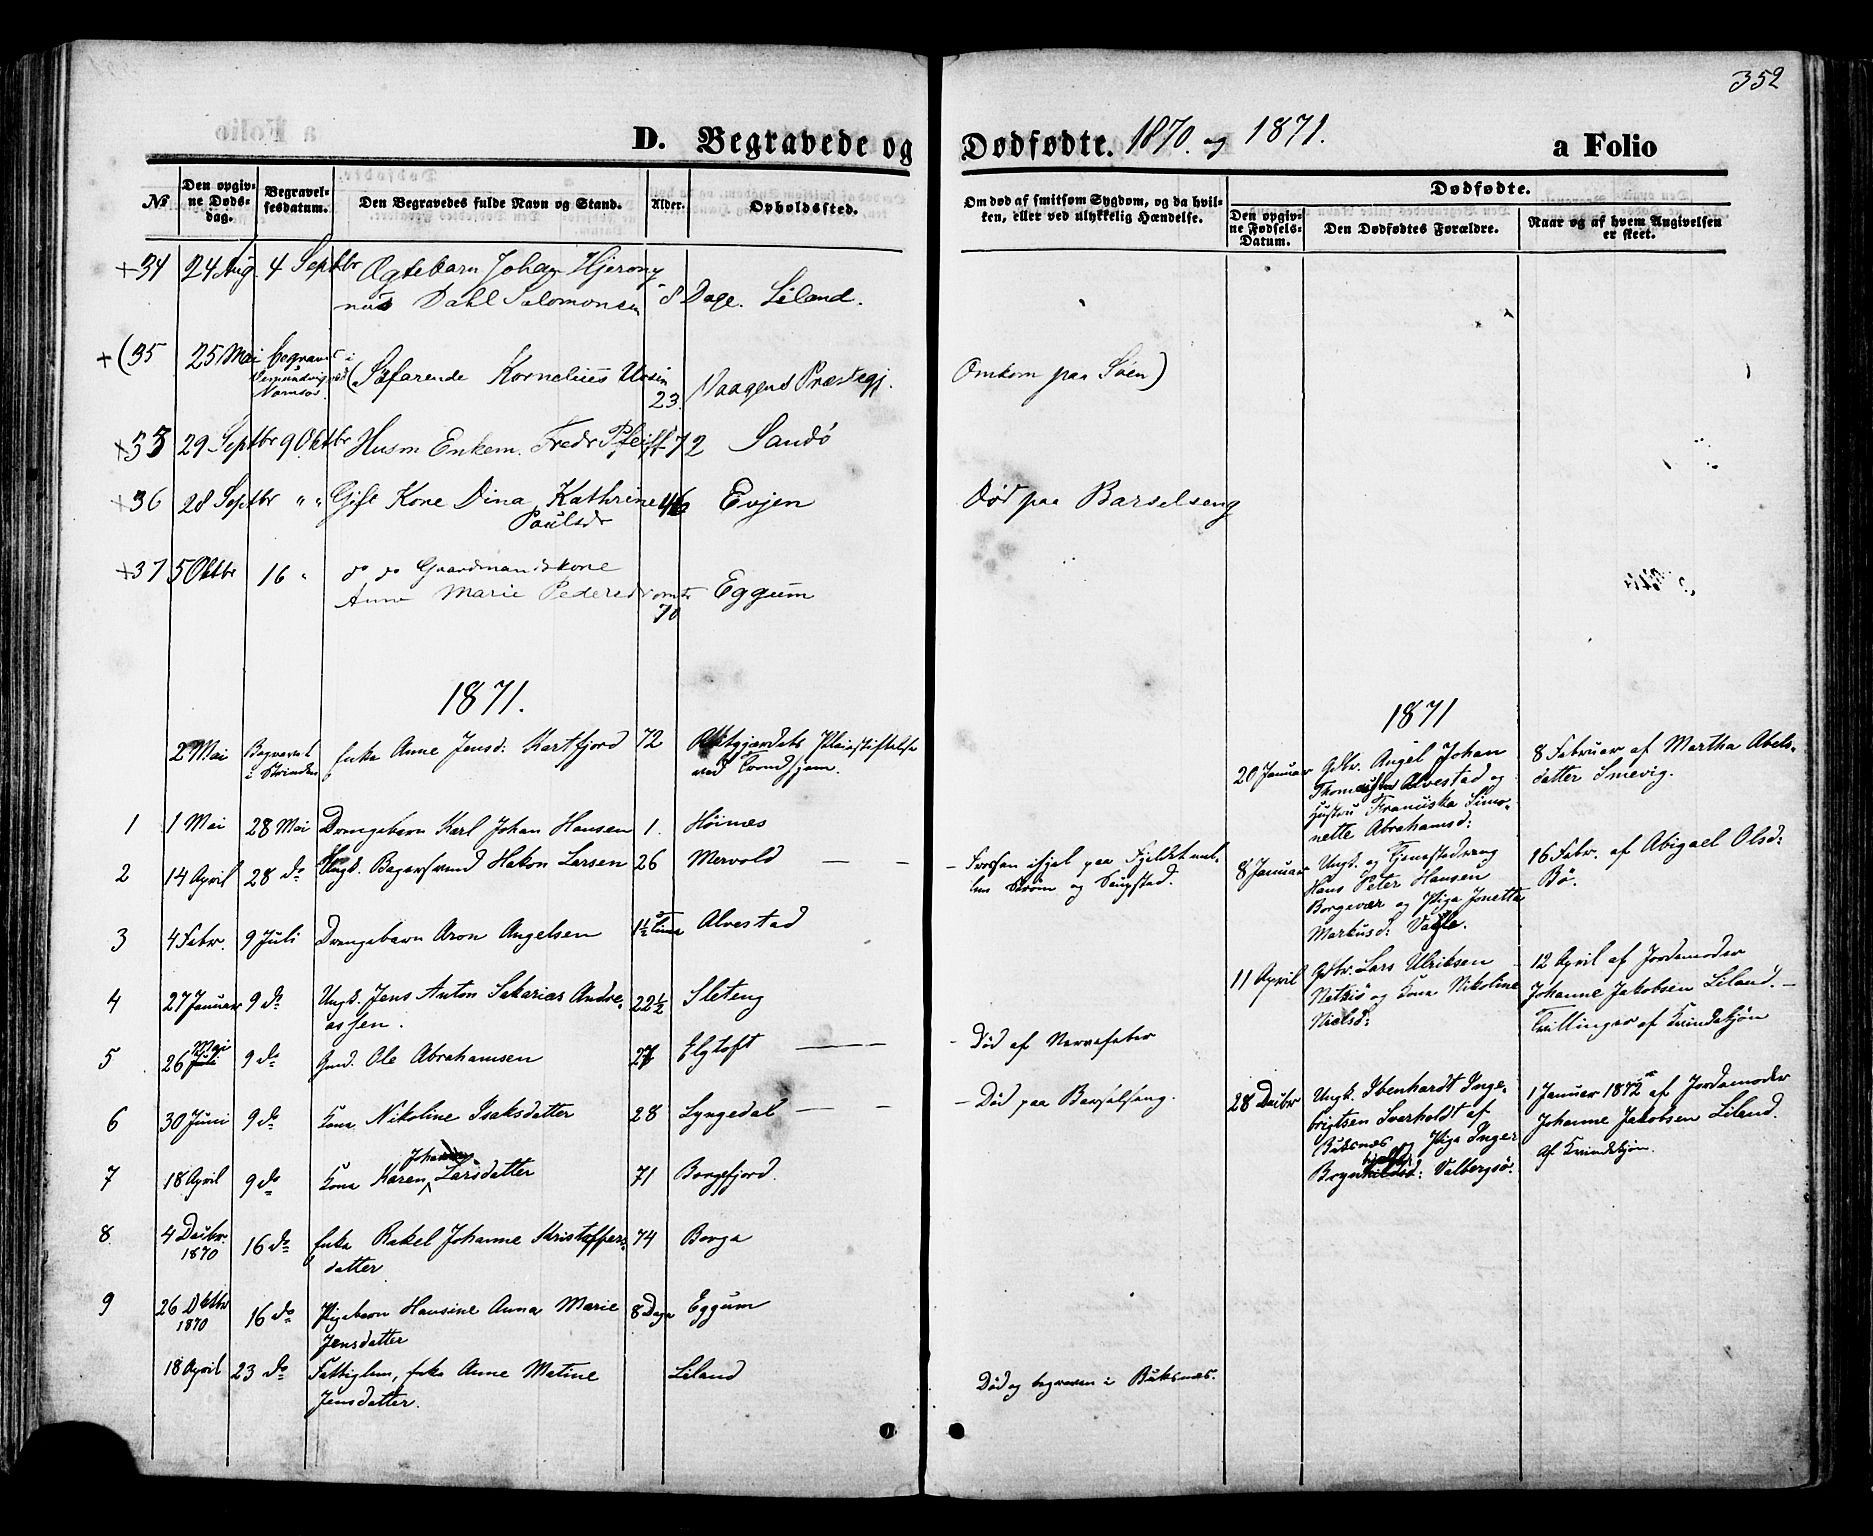 352
D. Begravede og Dødfødte. 1870. og 1871. a Folio
№
Den opgiv-
ne Døds-
dag.
Begravel-
sesdatum.
Den Begravedes fulde Navn og Stand.
Alder.
Opholdssted.
Om død af smitsom Sygdom, og da hvil-
ken, eller ved ulykkelig Hændelse.
Dødfødte.
Den opgiv-
ne Fødsels-
Datum.
Den Dødfødtes Forældre.
Naar og af hvem Angivelsen
er skeet.
+34 24 Aug. 4 Septbr Ægtebarn Johan Hjerony
mus Dahl Salomonsen 8 Dage. Liland.
+(35 25 Mai begravet i
Nornsøs (Søfarende Kornelius Ursin
23. Vaagens Præstegj. Omkom paa Søen)
+35 29 Septbr 9 Oktbr Husm Enkem. Fredr Pfeiff 72 Sandø
+36 28 Septbr " " Gift Kone Dina Kathrine 46 Evjen Død paa Barselseng
Paulsdr
+37 5 Oktbr 16 " do do Gaardmandskone
Anne Marie Pedersdr omtr Eggum
70
1871.
2 Mai Begravet
i Strinden Enke Anne Jensd: Kartfjord 72 Pleiestiftelse
ved Trondhjem.
1 1 Mai 28 Mai Drengebarn Karl Johan Hansen 1. Höines
2 14 April 28 do Ungk. Hakon Larsen 26 Mervold — — - Frossen ihjel paa Fjeldet mel-
lem Strøm og
3 4 Febr. 9 Juli Drengebarn Aron Angelsen 1½ Time Alvestad
4 27 Januar 9 do Ungk. Jens Anton Sakarias Andre- 22½ Sleteng
assen.
5 26 Mai 9 do Gmd. Ole Abrahamsen 27 Elgtoft — - Død af Nervefeber
6 30 Juni 9 do Kone Nikoline Isaksdatter 28 Lyngedal — - Død paa Barselseng.
7 18 April 9 do Kone Karen Johanna Larsdatter 71 Borgfjord.
8 4 Decbr
1870 16 do Enke Rakel Johanne Kristoffers- 74 Borga
datter
9 26 Oktbr
1870 16 do Pigebarn Hansine Anna Marie 8 Dage Eggum
Jensdatter
18 April 23 do Fattiglem, Enke Anne Matine Liland Død og begraven i Buksnæs.
Jensdatter.
1871
20 Januar Gdbr. Angel Johan
Thomassen Alvestad og
Hustru Franciska Simo-
nette Abrahamsd:
8 Februar af Martha Abels-
datter Smevig.
8 Januar Ungk. og Tjenestedreng
Hans Peter Hansen
Borgevær og Pige Jonetta
Markusd: Valle.
16 Febr. af Abigael Olsd:
Bö.
11 April Gdbr. Lars Ulriksen
og Kone Nikoline
Nielsd:
12 April af Jordemoder
Johanne Jakobsen Liland. —
Tvillinger af Kvindekjön
28 Decbr Ungk. Ibenhardt Inge-
brigtsen Sverholdt af
Buksnæs og Pige Inger
Valbergsö.
1 Januar 1872 af Jordemoder
Johanne Jakobsen Liland.
Af Kvindekjön.